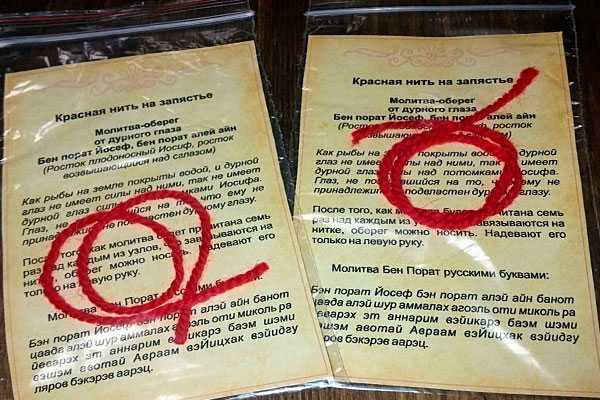 Красная нить на запястье
Молитва-оберег
от дурного глаза
Бен порат Йосеф, бен порат алей айн
(Росток плодоносный Иосиф, росток
возвышающийся над сглазом)
Как рыбы на земле покрыты водой, и дурной
глаз не имеет силы над ними, так не имеет
дурной глаз силы над потомками Иосифа.
Глаз, не
принадлежит подвластен дурному глазу.
После того, как молитва будет прочитана семь
раз над каждым из узлов, завязываются на
нитке, оберег можно носить. Надевают его
только на левую руку.
Молитва Бен Порат русскими буквами:
Бэн порат Йосеф бэн порат алэй айн банот
цаада алэй шур аммалах агоэль оти миколь ра
йеварэх эт аннарим вэйикарэ баэм шэми
вэшэм авотай Авраам вэЙицхак вэйидгу
ляров бэкэрэв аарэц.
Красная нить на запястье
Молитва-оберег
от дурного глаза
Бен порат Йосеф, бен порат алей айн
(Росток Иосиф, росток
возвышающийся над
Как рыбы на покрыты водой, и дурной
глаз не имеет силы над ними, так не имеет
дурной глаз над потомками Иосифа.
Глаз, не на то, ему не
принадлежит подвластен дурному глазу.
После того, как молитва будет прочитана семь
раз над каждым из узлов, завязываются на
нитке, оберег можно носить. Надевают его
только на левую руку.
Молитва Бен Порат русскими буквами:
Бэн порат Йосеф бэн порат алэй айн банот
цаада алэй шур аммалах агоэль оти миколь ра
йеварэх эт аннарим вэйикарэ баэм шэми
вэшэм авотай Авраам вэЙицхак вэйидгу
ляров бэкэрэв аарэц.